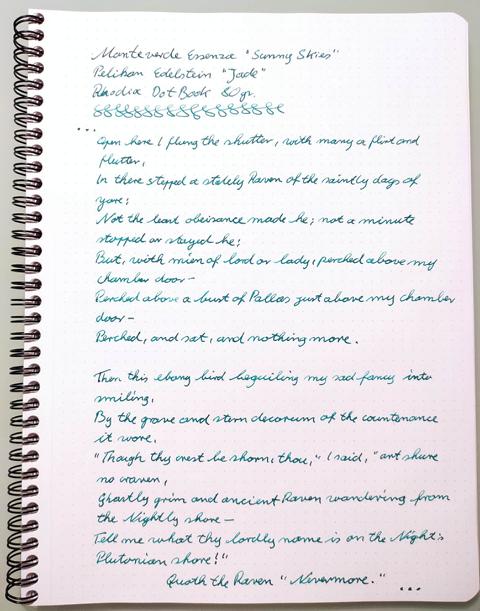 Monteverde Essenza "Sunny Skies"
Pelikan Edelstein "Jade"
Rhodia Dot Book 80gr.
...
Open here I flung the shutter, with many a flirt and
flutter,
In there stepped a stately Raven of the saintly days of
yore;
Not the least obeisance made he; not a minute
stopped or stayed he;
But, with mien of lord or lady, perched above my
chamber door—
Perched above a bust of Pallas just above my chamber
door—
Perched, and sat, and nothing more.
Then this ebony bird beguiling my sad fancy into
smiling,
By the grave and stern decorum of the countenance
it wore,
"Though thy crest be shorn, thou," I said, "art shure
no craven,
Ghastly grim and ancient Raven wandering from
the Nightly shore—
Tell me what thy lordly name is on the Night's
Plutonian shore!"
Quoth the Raven "Nevermore."
...